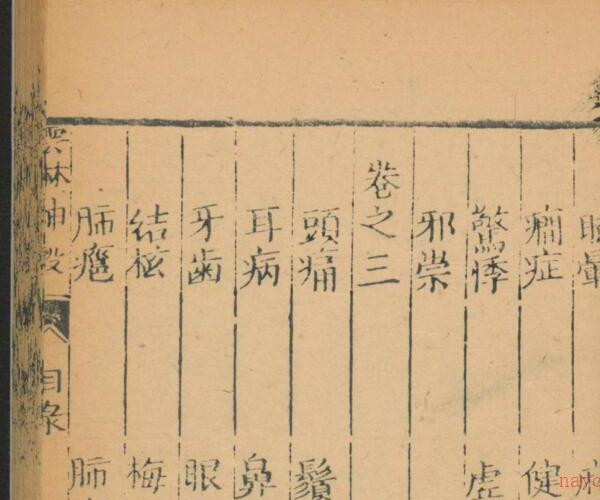 暈
癎症 健
驚悸 虛
邪祟
卷之三
頭痛 鬚
耳病 鼻
牙齒 眼
結核 梅
肺癰 肺
雲林神彀 目錄